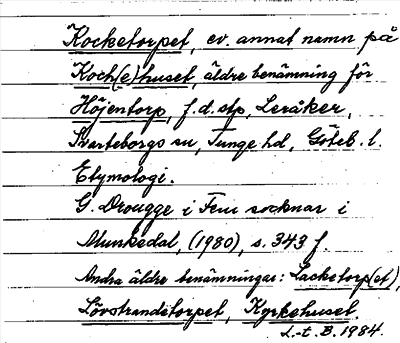 Kocketorpet, ev. annat namn på
Kock(e)huset, äldre benämning för
Höjentorp, f.d. stp, Leråker,
Svarteborgs sn, Tunge hd, Göteb. l.
Etymologi.
G. Drougge i Fem socknar i
Munkedal, (1980), s. 343 f.
Andra äldre benämningar: Lacketorp(et),
Lövstrandstorpet, Kyrkehuset.
L-t. B. 1984.